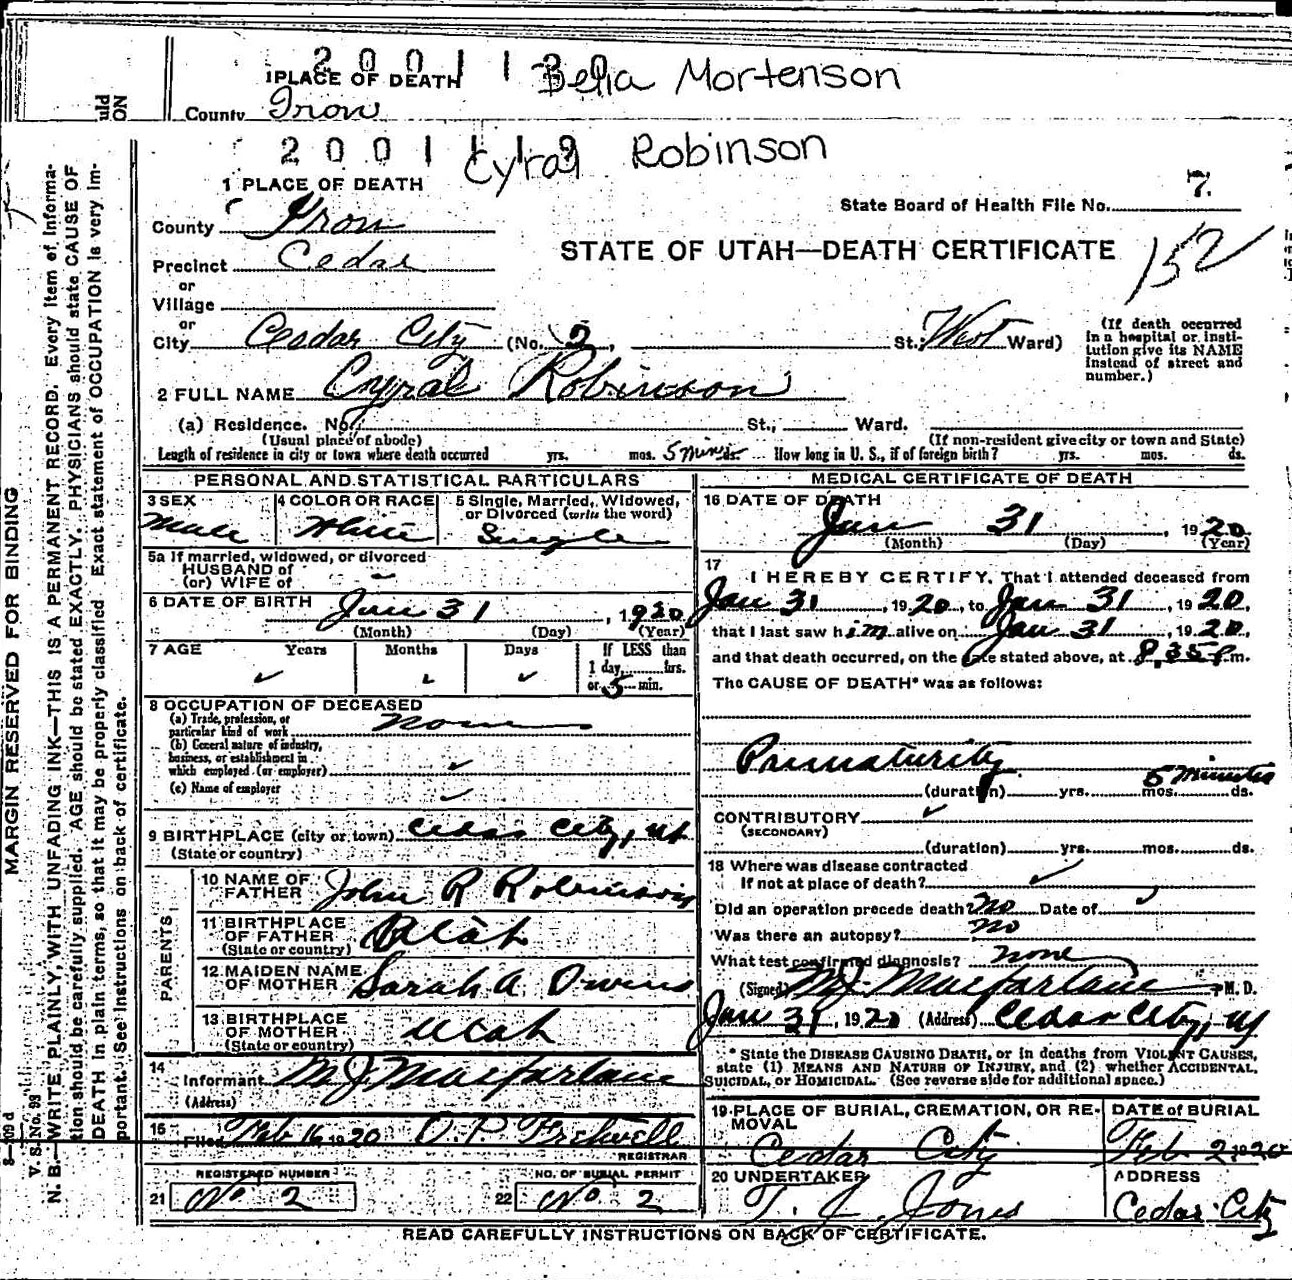 2 0 0 1 1 3 Belia Mortenson
1 PLACE OF DEATH
County Iron
2 0 0 1 1 1 9 Cyral Robinson
1 PLACE OF DEATH
State Board of Health File No. 7.
County Iron
STATE OF UTAH—DEATH CERTIFICATE 152
Precinct Cedar
or
Village
or
City Cedar City (No. 2, St.; West Ward) (If death occurred in a hospital or institution give its NAME instead of street and number.)
2 FULL NAME Cyral Robinson
(a) Residence. No. St., Ward.
(Usual place of abode) (If non-resident give city or town and State)
Length of residence in city or town where death occurred yrs. mos. 5 mins ds. How long in U. S., if of foreign birth? yrs. mos. ds.
PERSONAL AND STATISTICAL PARTICULARS
3 SEX Male
4 COLOR OR RACE White
5 Single, Married, Widowed, or Divorced (write the word) Single
5a If married, widowed, or divorced
HUSBAND of
(or) WIFE of -
6 DATE OF BIRTH Jan 31, 1920
(Month) (Day) (Year)
7 AGE Years Months Days If LESS than
1 day, hrs.
or 5 min.
8 OCCUPATION OF DECEASED
(a) Trade, profession, or
particular kind of work none
(b) General nature of industry,
business, or establishment in
which employed (or employer)
(c) Name of employer
9 BIRTHPLACE (city or town) Cedar City, Ut
(State or country)
PARENTS
10 NAME OF FATHER John R Robinson
11 BIRTHPLACE OF FATHER Utah
(State or country)
12 MAIDEN NAME OF MOTHER Sarah A. Owens
13 BIRTHPLACE OF MOTHER Utah
(State or country)
14 Informant M J Macfarlane
(Address)
15 Filed Feb 16 1920 O. P. Fretwell
REGISTRAR
REGISTERED NUMBER
21 No 2
NO. OF BURIAL PERMIT
22 No 2
MEDICAL CERTIFICATE OF DEATH
16 DATE OF DEATH
Jan 31 1920
(Month) (Day) (Year)
17 I HEREBY CERTIFY, That I attended deceased from
Jan 31, 1920, to Jan 31, 1920,
that I last saw him alive on Jan 31, 1920,
and that death occurred, on the date stated above, at 8,35 P m.
The CAUSE OF DEATH* was as follows:
Prematurity
5 minutes
(duration) yrs. mos. ds.
CONTRIBUTORY
(SECONDARY)
(duration) yrs. mos. ds.
18 Where was disease contracted
If not at place of death?
Did an operation precede death No Date of
Was there an autopsy? No
What test confirmed diagnosis? none
(Signed) M. J. Macfarlane, M. D.
Jan 31, 1920 (Address) Cedar City, Ut
* State the DISEASE CAUSING DEATH, or in deaths from VIOLENT CAUSES,
state (1) MEANS AND NATURE OF INJURY, and (2) whether ACCIDENTAL,
SUICIDAL, or HOMICIDAL. (See reverse side for additional space.)
19 PLACE OF BURIAL, CREMATION, OR REMOVAL
Cedar City
DATE of BURIAL
Feb 2 1920
20 UNDERTAKER
T. J. Jones
ADDRESS
Cedar City
READ CAREFULLY INSTRUCTIONS ON BACK OF CERTIFICATE.
MARGIN RESERVED FOR BINDING
V. S. No. 93
N. B.—WRITE PLAINLY, WITH UNFADING INK—THIS IS A PERMANENT RECORD. Every item of informa-
tion should be carefully supplied. AGE should be stated EXACTLY. PHYSICIANS should state CAUSE OF
DEATH in plain terms, so that it may be properly classified. Exact statement of OCCUPATION is very im-
portant. See instructions on back of certificate.